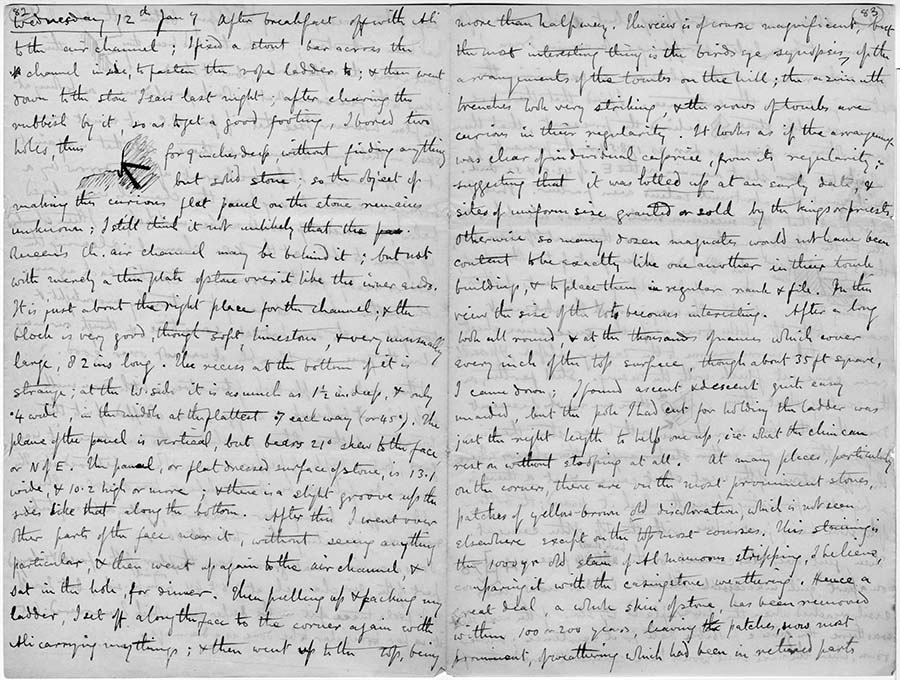 82
Wednesday 12th Jany After breakfast off with Ali
to the air channel; I fixed a stout bar across the
channel inside, to fasten the rope ladder to; & then went
down to the stone I saw last night; after clearing the
rubbish by it, so as to get a good footing, I bored two
holes, thus for 9 inches deep, without finding anything
but solid stone; so the object of
making this curious flat panel on the stone remains
unknown; I still think it not unlikely that the
the air channel may be behind it; but not
with merely a thin plate of stone over it like the inner ends.
It is just about the right place for the channel; & the
block is very good, though soft, limestone, & very unusually
large, 82 ins long. The recess at the bottom of it is
strange; at the W. side it is as much as 1½ in deep, & only
.4 wide in the middle at the flattest .7 each way (or 45°). The
plane of the panel is vertical, but bears 21° skew to the face
or N of E. The panel, or flat dressed surface of stone, is 13.
wide, & 10.2 high or more; & there is a slight groove up the
sides like that along the bottom. After this I went over
other part of the face near it, without seeing anything
particular, & then went up again to the air channel, &
sat in the hole, for dinner. Then pulling up & packing my
ladder, I set off along the face to the corner again with
Ali carrying my things; & then went up to the top, being
83
more than half way. The view is of course magnificent, but
the most interesting thing is the birds eye synopsis, of the
arrangements of the tombs on the hill; the azimuth
trenches look very striking, & the rows of tombs are
curious in their regularity. It looks as if the arrangement
was clear of individual caprice, from its regularity;
suggesting that it was lotted up at an early date, &
sites of uniform size granted or sold by the kings or priests.
Otherwise so many dozen magnates would not have been
content to be exactly like one another in their tomb
building, & to place them in regular rank & file. In this
view the size of the lots becomes interesting. After a long
look all round, & at the thousands of names which cover
every inch of the top surface, though about 35 ft square,
I came down; I found ascent & descent quite easy
unaided but the pole I had cut for holding the ladder was
just the right length to help one up, i.e. what the chin can
rest on without stooping at all. At many places, particularly
on the corners, there are on the most prominent stones,
patches of yellow-brown old discoloration, which is not seen
elsewhere except on the top most courses. This staining is
the 1000 yr old stain of Al Mamoons stripping, I believe,
comparing it with the casing stone weathering. Hence a
great deal, a whole skin of stone, has been removed
within 100 or 200 years, leaving the patches, now most
prominent, of weathering which had been in retired parts